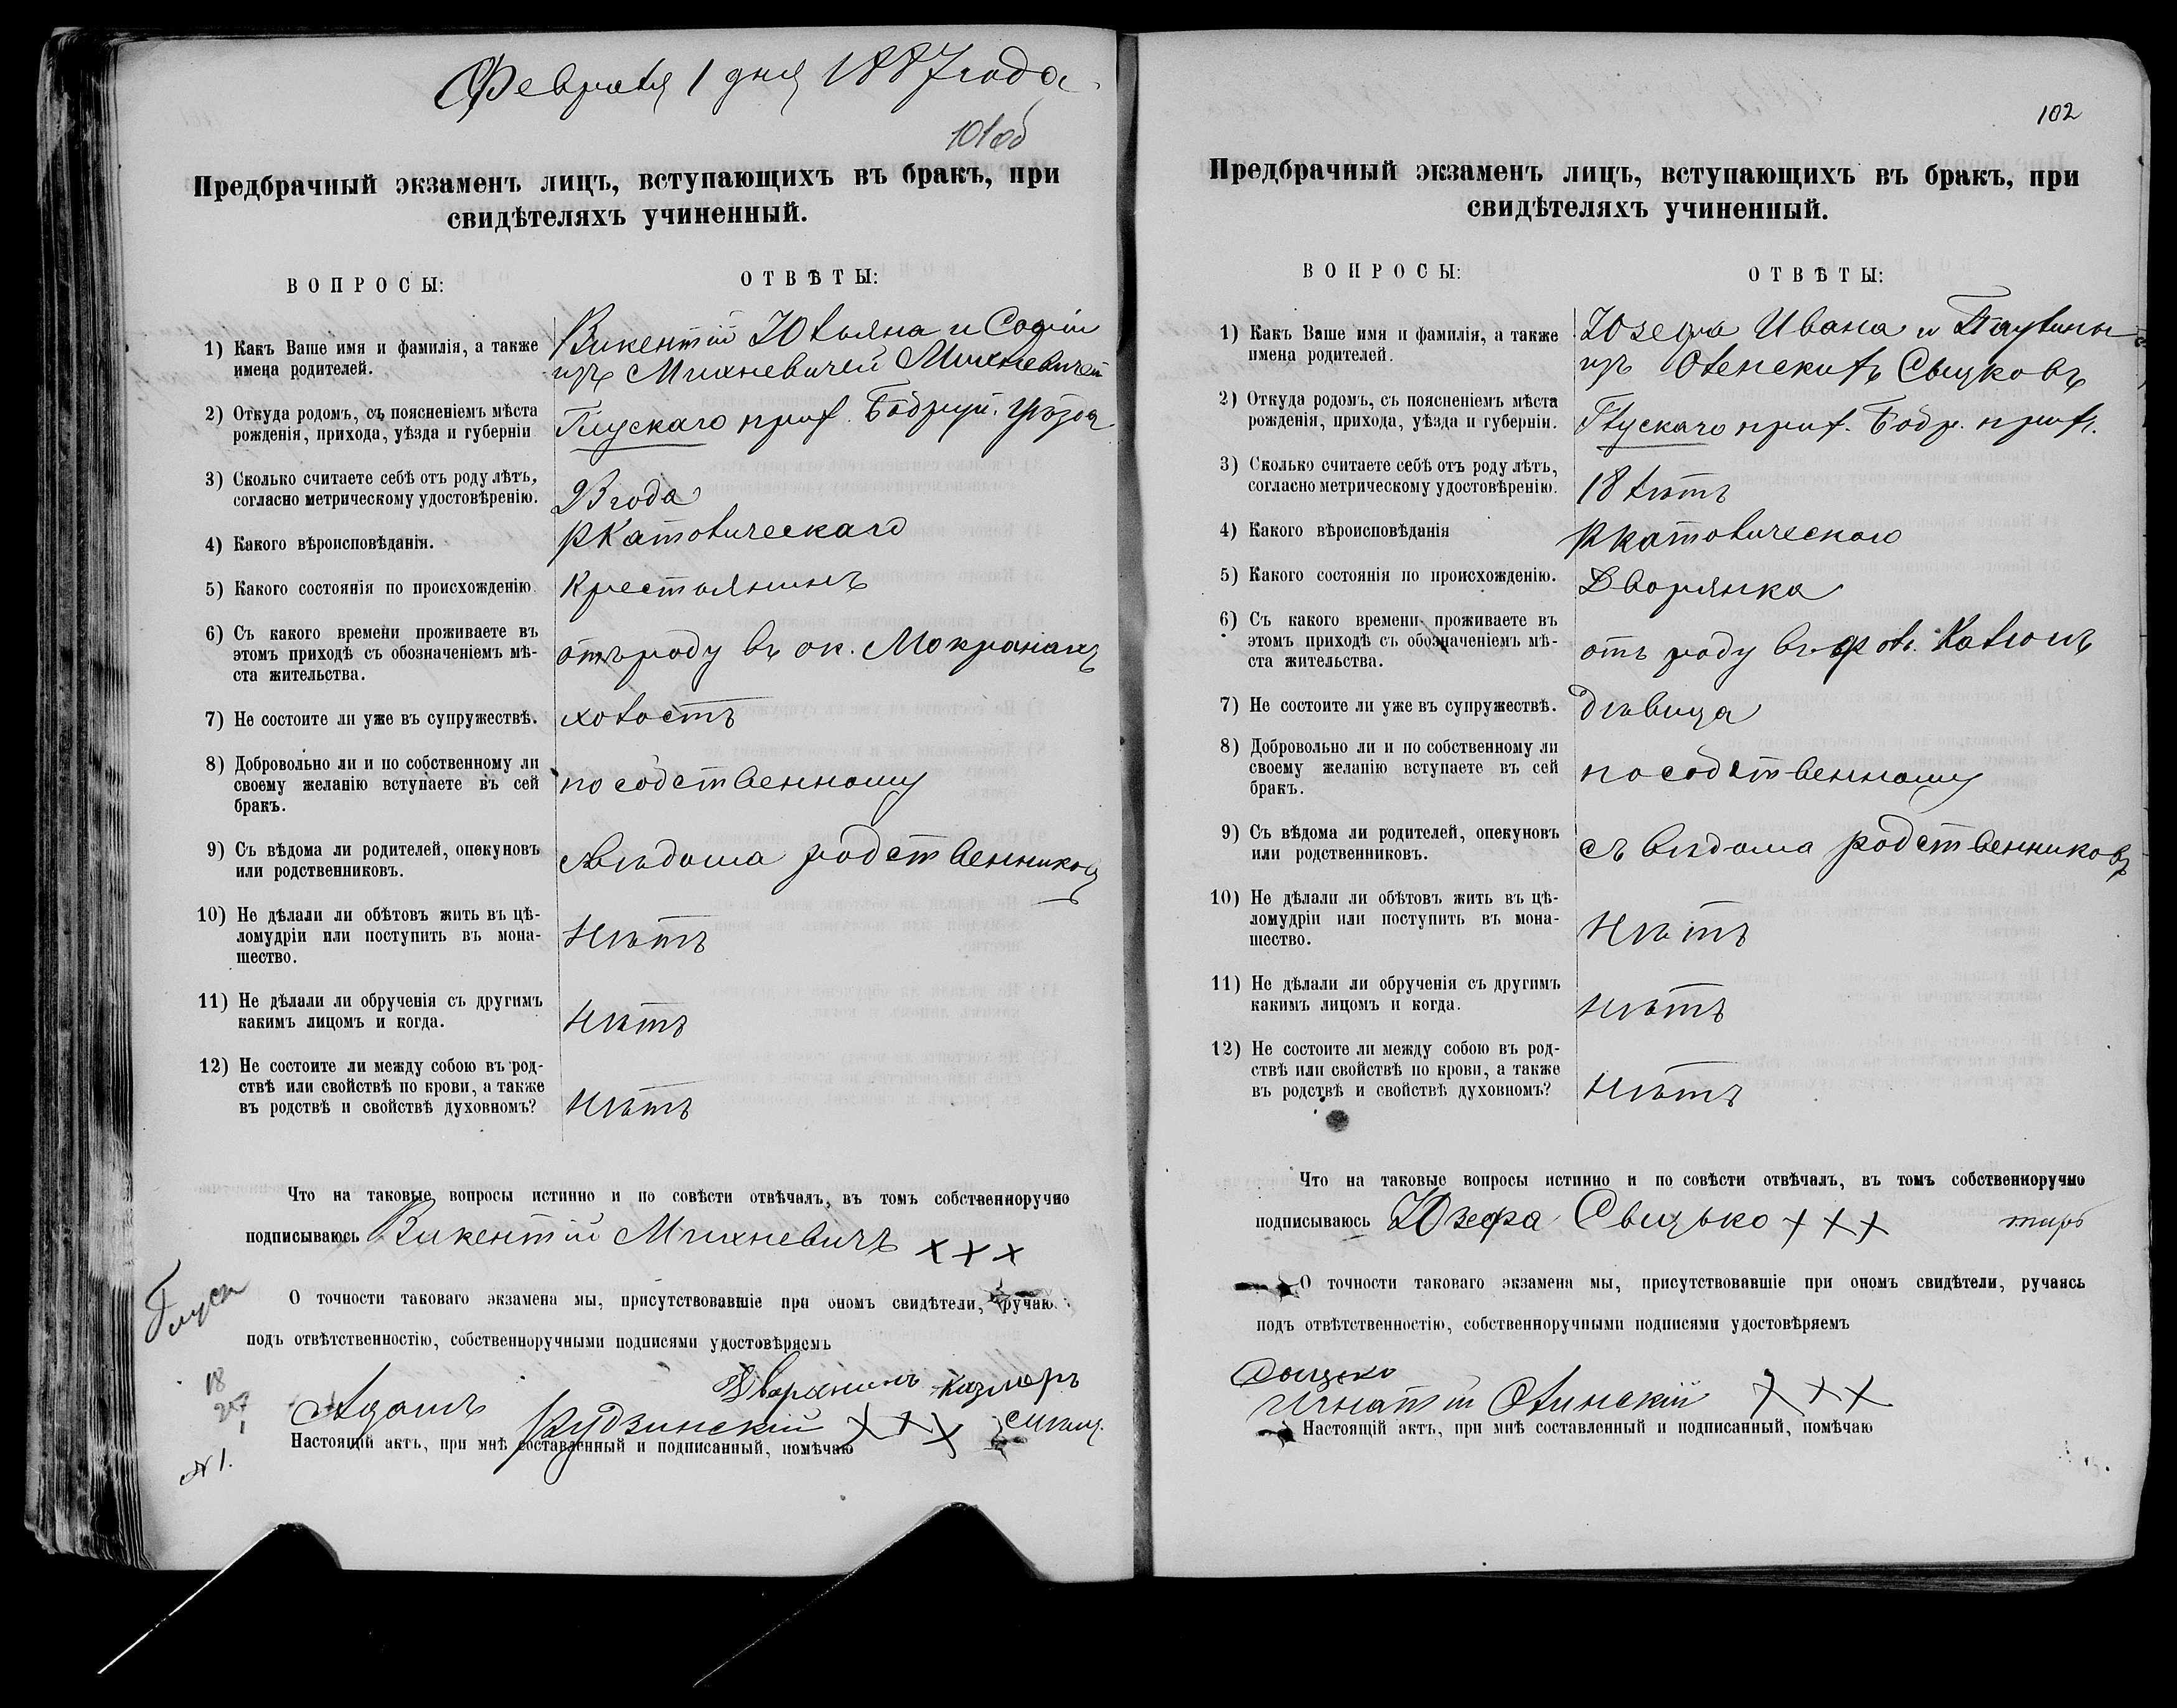 Февраля 1 дня 1887 года
101об
Предбрачный экзаменъ лицъ, вступающихъ въ бракъ, при
свидѣтеляхъ учиненный.
ВОПРОСЫ:
ОТВѢТЫ:
1) Какъ Ваше имя и фамилія, а также
имена родителей.
Викентій Юльяна и Софіи
изъ Михневичей Михневичей
2) Откуда родомъ, съ поясненіемъ мѣста
рожденія, прихода, уѣзда и губерніи
Глускаго прих. Бобруй. уѣзда
3) Сколько считаете себѣ отъ роду лѣтъ,
согласно метрическому удостовѣренію.
23 года
4) Какого вѣроисповѣданія.
РКатолическаго
5) Какого состоянія по происхожденію
Крестьянинъ
6) Съ какого времени проживаете въ
этомъ приходѣ съ обозначеніемъ мѣ-
ста жительства.
отъ роду въ ок. Мокранахъ
7) Не состоите ли уже въ супружествѣ.
холостъ
8) Добровольно ли и по собственному ли
своему желанію вступаете въ сей
бракъ.
по собственному
9) Съ вѣдома ли родителей, опекуновъ
или родственниковъ.
съ вѣдома родственниковъ
10) Не дѣлали ли обѣтовъ жить въ цѣ-
ломудріи или поступить въ мона-
шество.
Нѣтъ
11) Не дѣлали ли обрученія съ другимъ
какимъ лицомъ и когда.
Нѣтъ
12) Не состоите ли между собою въ род-
ствѣ или свойствѣ по крови, а также
въ родствѣ и свойствѣ духовномъ?
Нѣтъ
Что на таковые вопросы истинно и по совѣсти отвѣчалъ, въ томъ собственноручно
подписываюсь Викентій Михневичъ ххх
О точности таковаго экзамена мы, присутствовавшіе при ономъ свидѣтели, ручаю
подъ отвѣтственностію, собственноручными подписями удостовѣряемъ
Глуск
18
27
1
№ 1.
Дворянинъ Казмеръ
Адамъ Рудзинскій ххх
Настоящій актъ, при мнѣ составленный и подписанный, помѣчаю
102
Предбрачный экзаменъ лицъ, вступающихъ въ бракъ, при
свидѣтеляхъ учиненный.
ВОПРОСЫ:
ОТВѢТЫ:
1) Какъ Ваше имя и фамилія, а также
имена родителей.
Юзефа Ивана и Паулины
изъ Оленскихъ Свицковъ
2) Откуда родомъ, съ поясненіемъ мѣста
рожденія, прихода, уѣзда и губерніи.
Глускаго прих. Бобр. прих.
3) Сколько считаете себѣ отъ роду лѣтъ,
согласно метрическому удостовѣренію.
18 лѣтъ
4) Какого вѣроисповѣданія
Ркатолическаго
5) Какого состоянія по происхожденію.
Дворянка
6) Съ какого времени проживаете въ
этомъ приходѣ съ обозначеніемъ мѣ-
ста жительства.
отъ роду въ
7) Не состоите ли уже въ супружествѣ.
дѣвица
8) Добровольно ли и по собственному ли
своему желанію вступаете въ сей
бракъ.
по собственному
9) Съ вѣдома ли родителей, опекуновъ
или родственниковъ.
съ вѣдома родственниковъ
10) Не дѣлали ли обѣтовъ жить въ цѣ-
ломудріи или поступить въ мона-
шество.
Нѣтъ
11) Не дѣлали ли обрученія съ другимъ
какимъ лицомъ и когда.
Нѣтъ
12) Не состоите ли между собою въ род-
ствѣ или свойствѣ по крови, а также
въ родствѣ и свойствѣ духовномъ?
Нѣтъ
Что на таковые вопросы истинно и по совѣсти отвѣчалъ, въ томъ собственноручно
подписываюсь Юзефа Свицько ххх
О точности таковаго экзамена мы, присутствовавшіе при ономъ свидѣтели, ручаясь
подъ отвѣтственностію, собственноручными подписями удостовѣряемъ
Игнатій Олинскій ххх
Настоящій актъ, при мнѣ составленный и подписанный, помѣчаю